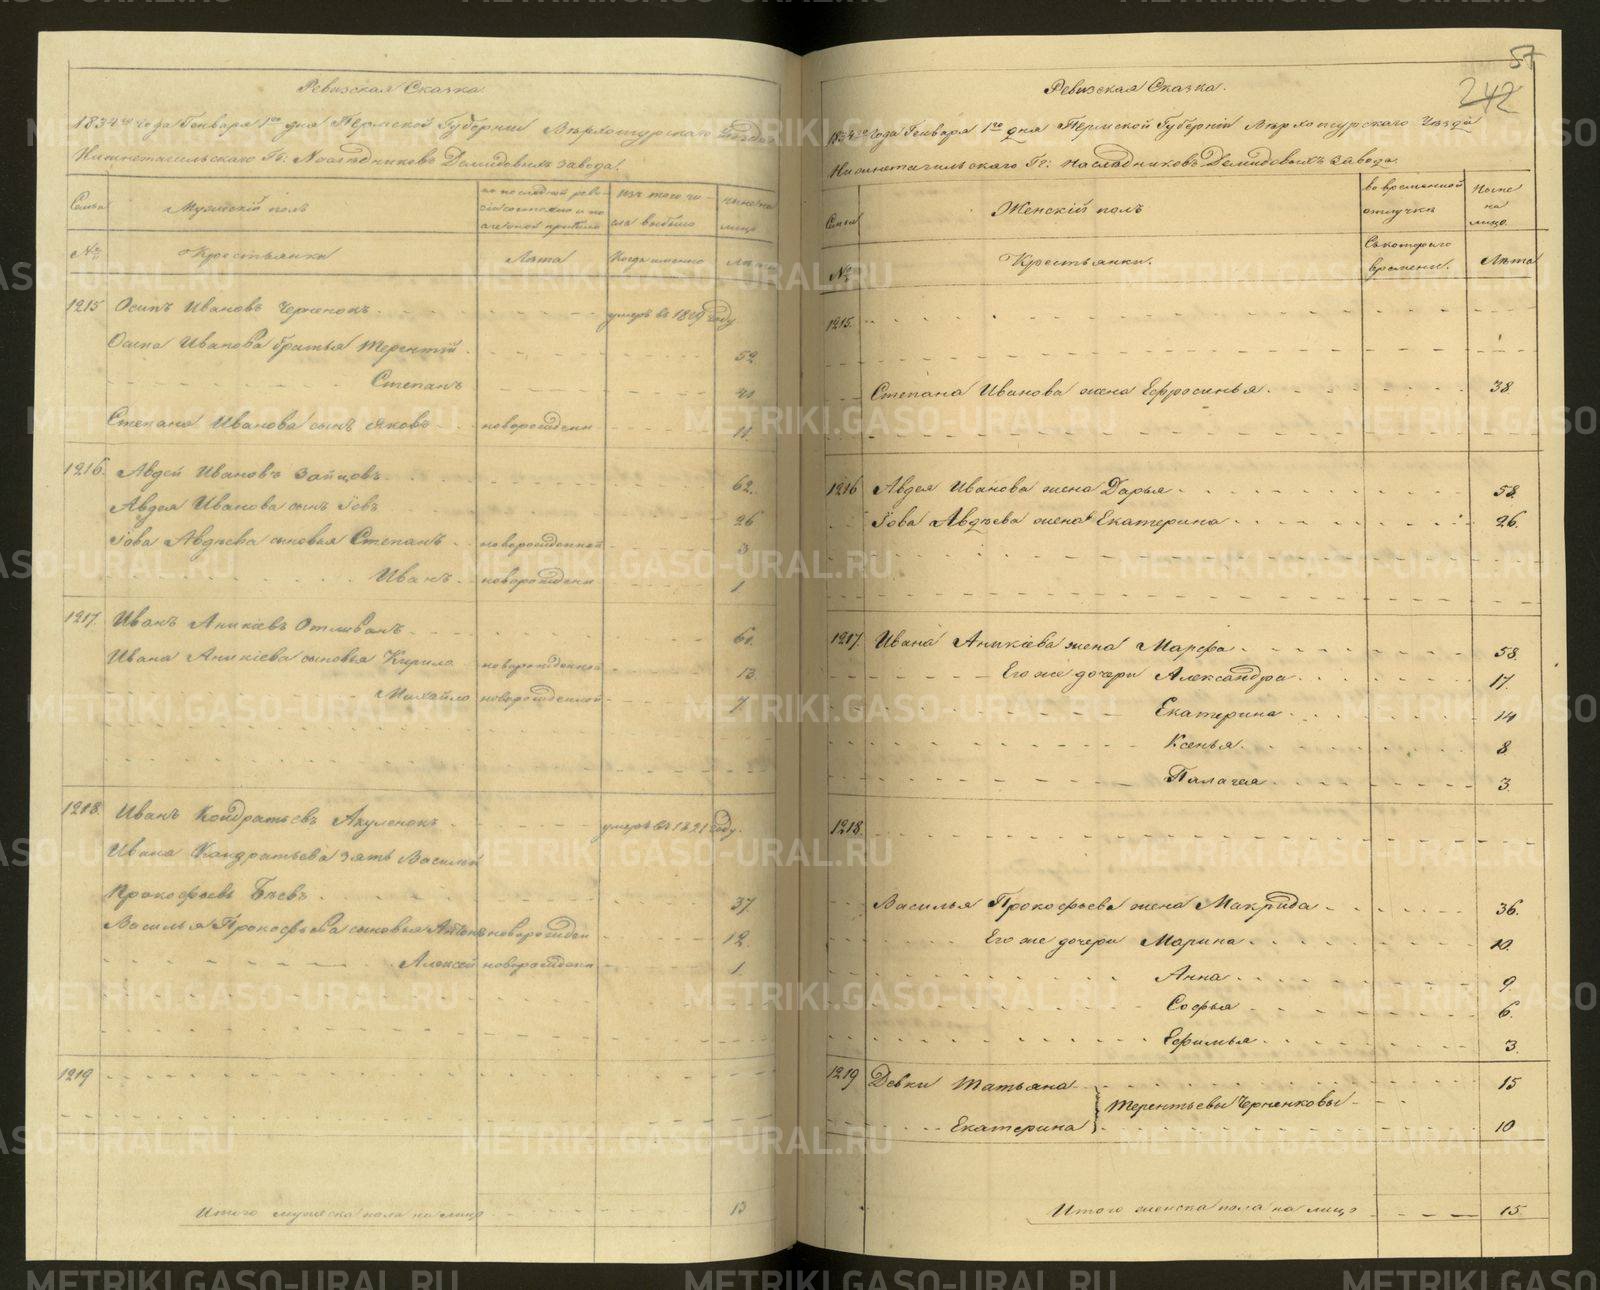 Ревизская Сказка.
1834го года Генваря 1го дня Пермской Губерніи Верхотурскаго Уезда
Нижнетагильскаго Гг: Наследниковъ Демидовыхъ завода.
Семьи Мужескій полъ по последней ревизіи состояло и после оной прибыло изъ того числа выбыло ныне на лицо
№ Крестьянина Лета Когда именно Лета
1215 Осипъ Ивановъ Черненокъ умеръ въ году
Осипа Иванова братья Терентій 52
Степанъ 41
Степана Иванова сынъ Яковъ новорожден 11
1216. Авдей Ивановъ Зайцовъ 62.
Авдея Иванова сынъ Іовъ 26
Іова Авдеева сыновья Степанъ новорожденной 3
Иванъ новорожден 1
1217. Иванъ Аникіевъ Отливанъ 61.
Ивана Аникіева сыновья Кирило новорожденной 13
Михайло новорожденной 7
1218. Иванъ Кондратьевъ Акуленокъ умеръ въ 1821 году.
Ивана Кандратьева зять Василій
Прокофьевъ 37
Василья Прокофьева сыновья Антонъ новорожден 12.
Алексей новорожден 1.
1219
Итого мужеска пола на лицо 13
57
242
Ревизская Сказка.
1834го года Генваря 1го дня Пермской Губерніи Верхотурскаго Уезда
Нижнетагильскаго Гг: Наследниковъ Демидовыхъ завода.
Семьи Женскій полъ во временной отлучке Ныне на лицо.
№ Крестьянки. Съ котораго времени. Лета
1215.
Степана Иванова жена Ефросинья 38
1216 Авдея Иванова жена Дарья 58
Іова Авдеева жена Екатерина 26.
1217 Ивана Аникіева жена Марфа 58.
Его же дочери Александра 17.
Екатерина 14
Ксенья 8
Палагея 3.
1218.
Василья Прокофьева жена Макрида 36.
Его же дочери Марина 10.
Анна 9.
Софья 6.
Ефимья 3.
1219 Девки Татьяна 15
Терентьевы Черненковы
Екатерина 10
Итого женска пола на лицо 15.
METRIKI.GASO-URAL.RU